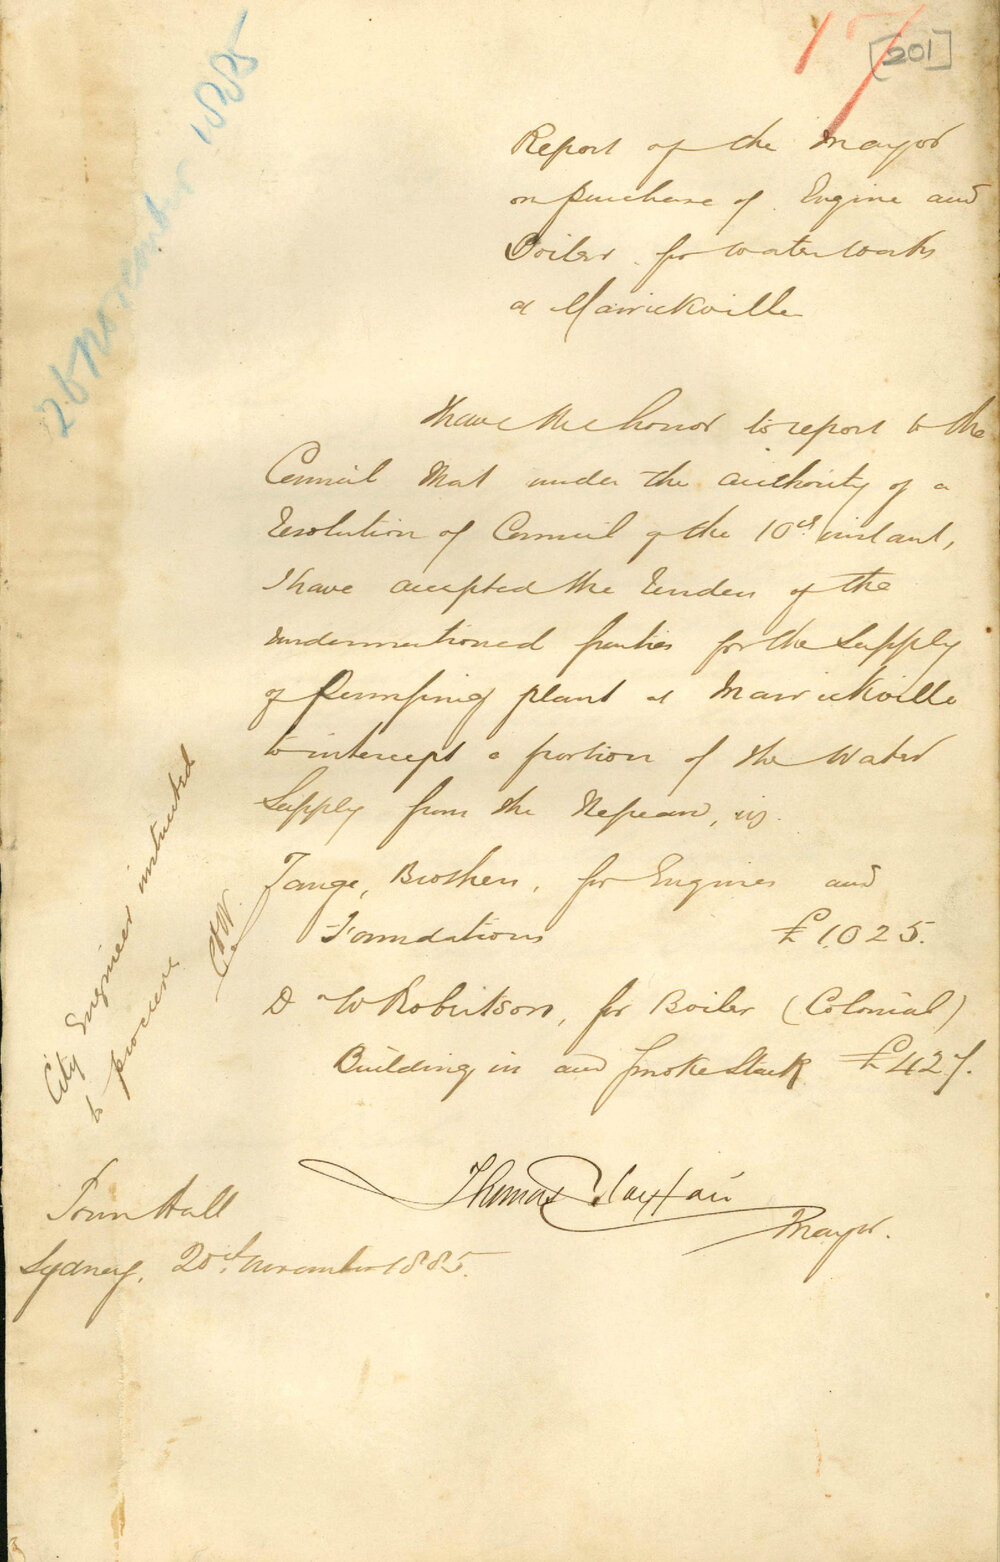 17
[201]
26 November 1885
Report of the Mayor
on purchase of Engine and
Boiler for Water Works
at Marrickville
I have the honor to report to the
Council that under the authority of a
Resolution of Council of the 10th instant,
I have accepted the Tenders of the
undermentioned parties for the Supply
of Pumping plant at Marrickville
to intercept a portion of the Water
Supply from the Nepean, viz
Tange, Brothers, for Engines and
Foundations £1025.
D W Robertson, for Boiler (Colonial)
Building in and smoke Stack £427.
City Engineer instructed
to procure
Thomas Playfair
Mayor.
Town Hall
Sydney, 20th November 1885.